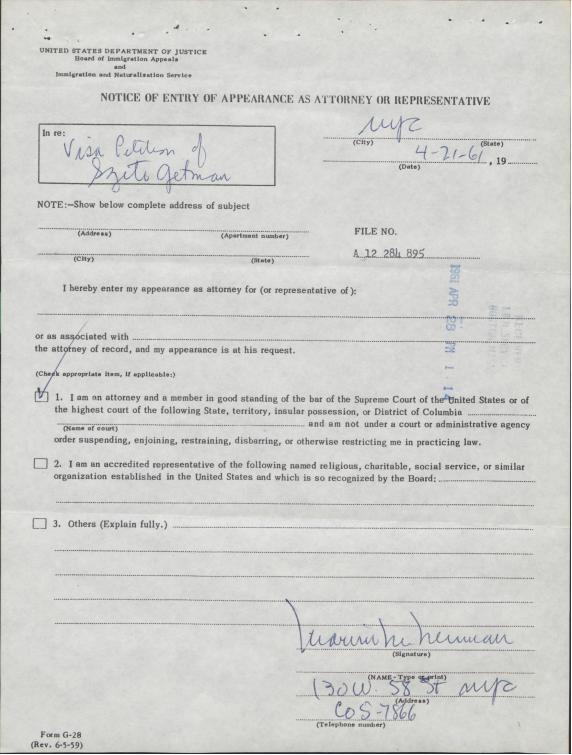 UNITED STATES DEPARTMENT OF JUSTICE
Board of Immigration Appeals
and
Immigration and Naturalization Service
NOTICE OF ENTRY OF APPEARANCE AS ATTORNEY OR REPRESENTATIVE
In re:
Visa Petition of
Szeto Getman
NYC
(City) (State)
4-21-61, 19
(Date)
NOTE:—Show below complete address of subject
(Address) (Apartment number)
(City) (State)
FILE NO.
A 12 284 895
1961 APR 28 PM 1 14
I hereby enter my appearance as attorney for (or representative of):
or as associated with
the attorney of record, and my appearance is at his request.
(Check appropriate item, if applicable:)
1. I am an attorney and a member in good standing of the bar of the Supreme Court of the United States or of
the highest court of the following State, territory, insular possession, or District of Columbia
and am not under a court or administrative agency
(Name of court)
order suspending, enjoining, restraining, disbarring, or otherwise restricting me in practicing law.
2. I am an accredited representative of the following named religious, charitable, social service, or similar
organization established in the United States and which is so recognized by the Board:
3. Others (Explain fully.)
(Signature)
(NAME - Type or print)
130 W. 58 St NYC
(Address)
CO 5-7866
(Telephone number)
Form G-28
(Rev. 6-5-59)